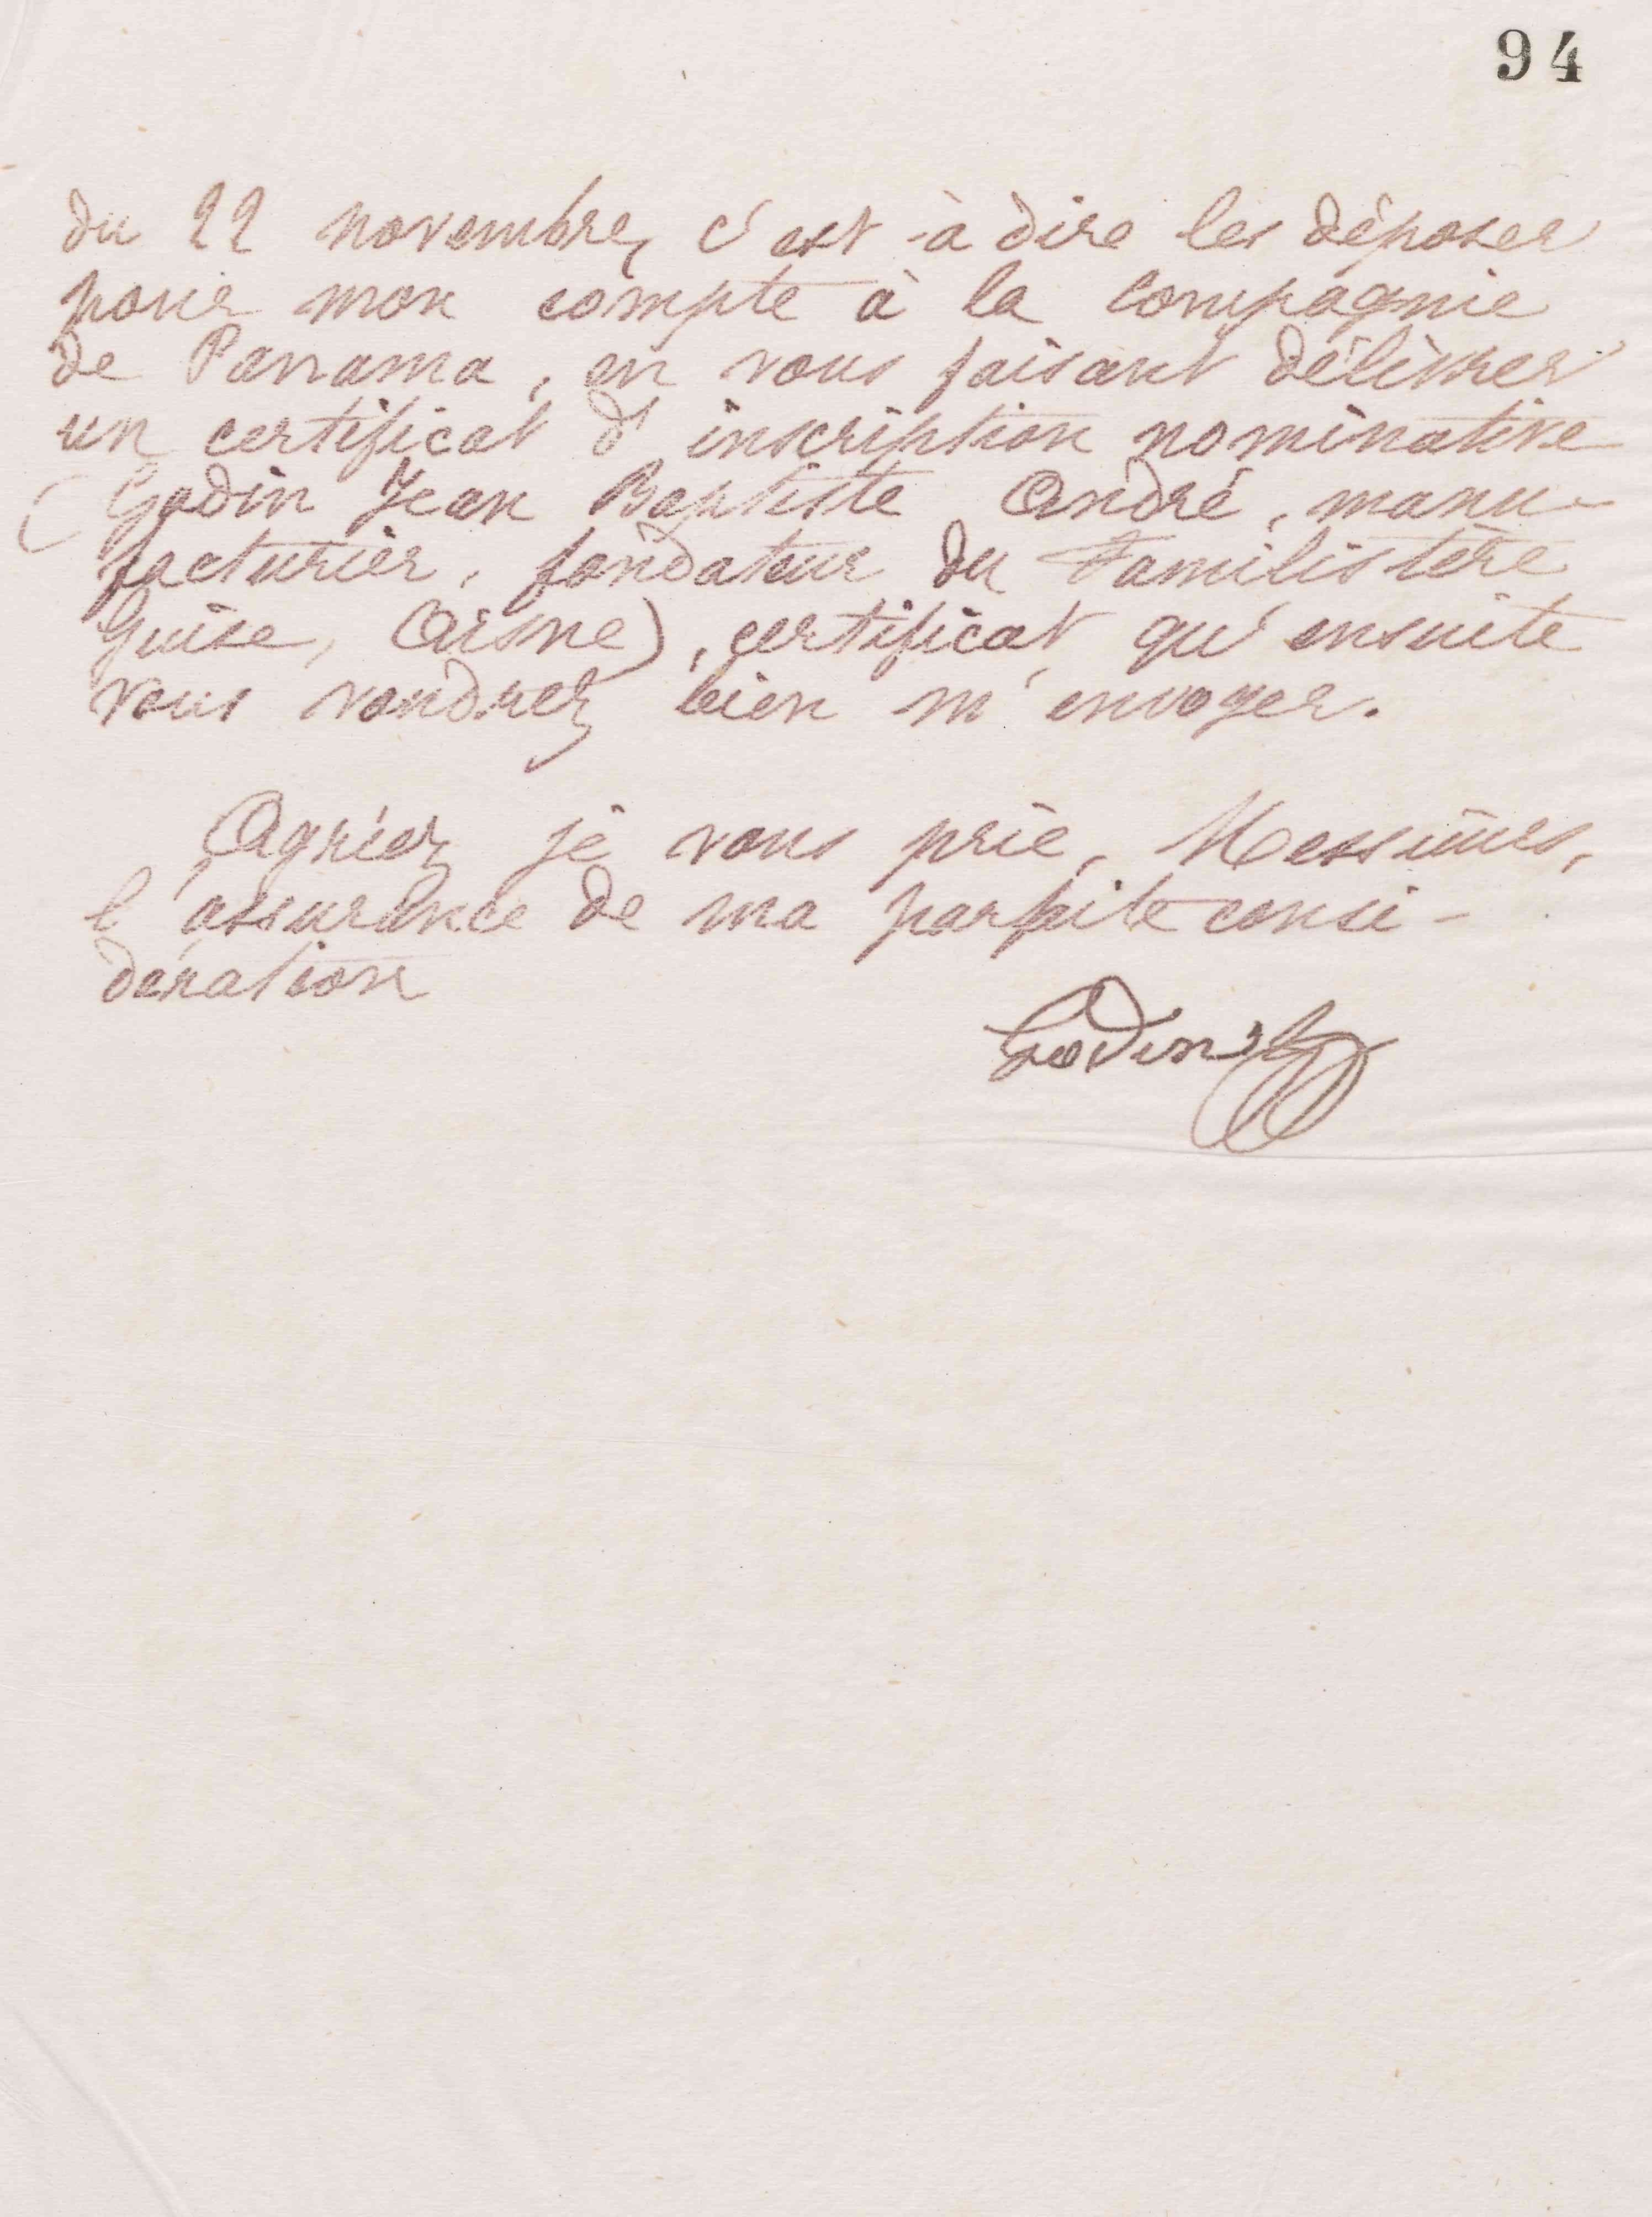 94
du 22 novembre, c'est-à dire les déposer
pour mon compte à la Compagnie
de Panama, en vous faisant délivrer
un certificat d'inscription nominative
(Godin Jean Baptiste André, manu-
facturier, fondateur du Familistère
Guise, Aisne), certificat qu'ensuite
vous voudrez bien m'envoyer.
Agréez, je vous prie, Messieurs,
l'assurance de ma parfaite consi-
dération
Godin